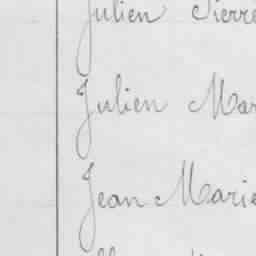 Julien Pierre
Julien Mar
Jean Marie